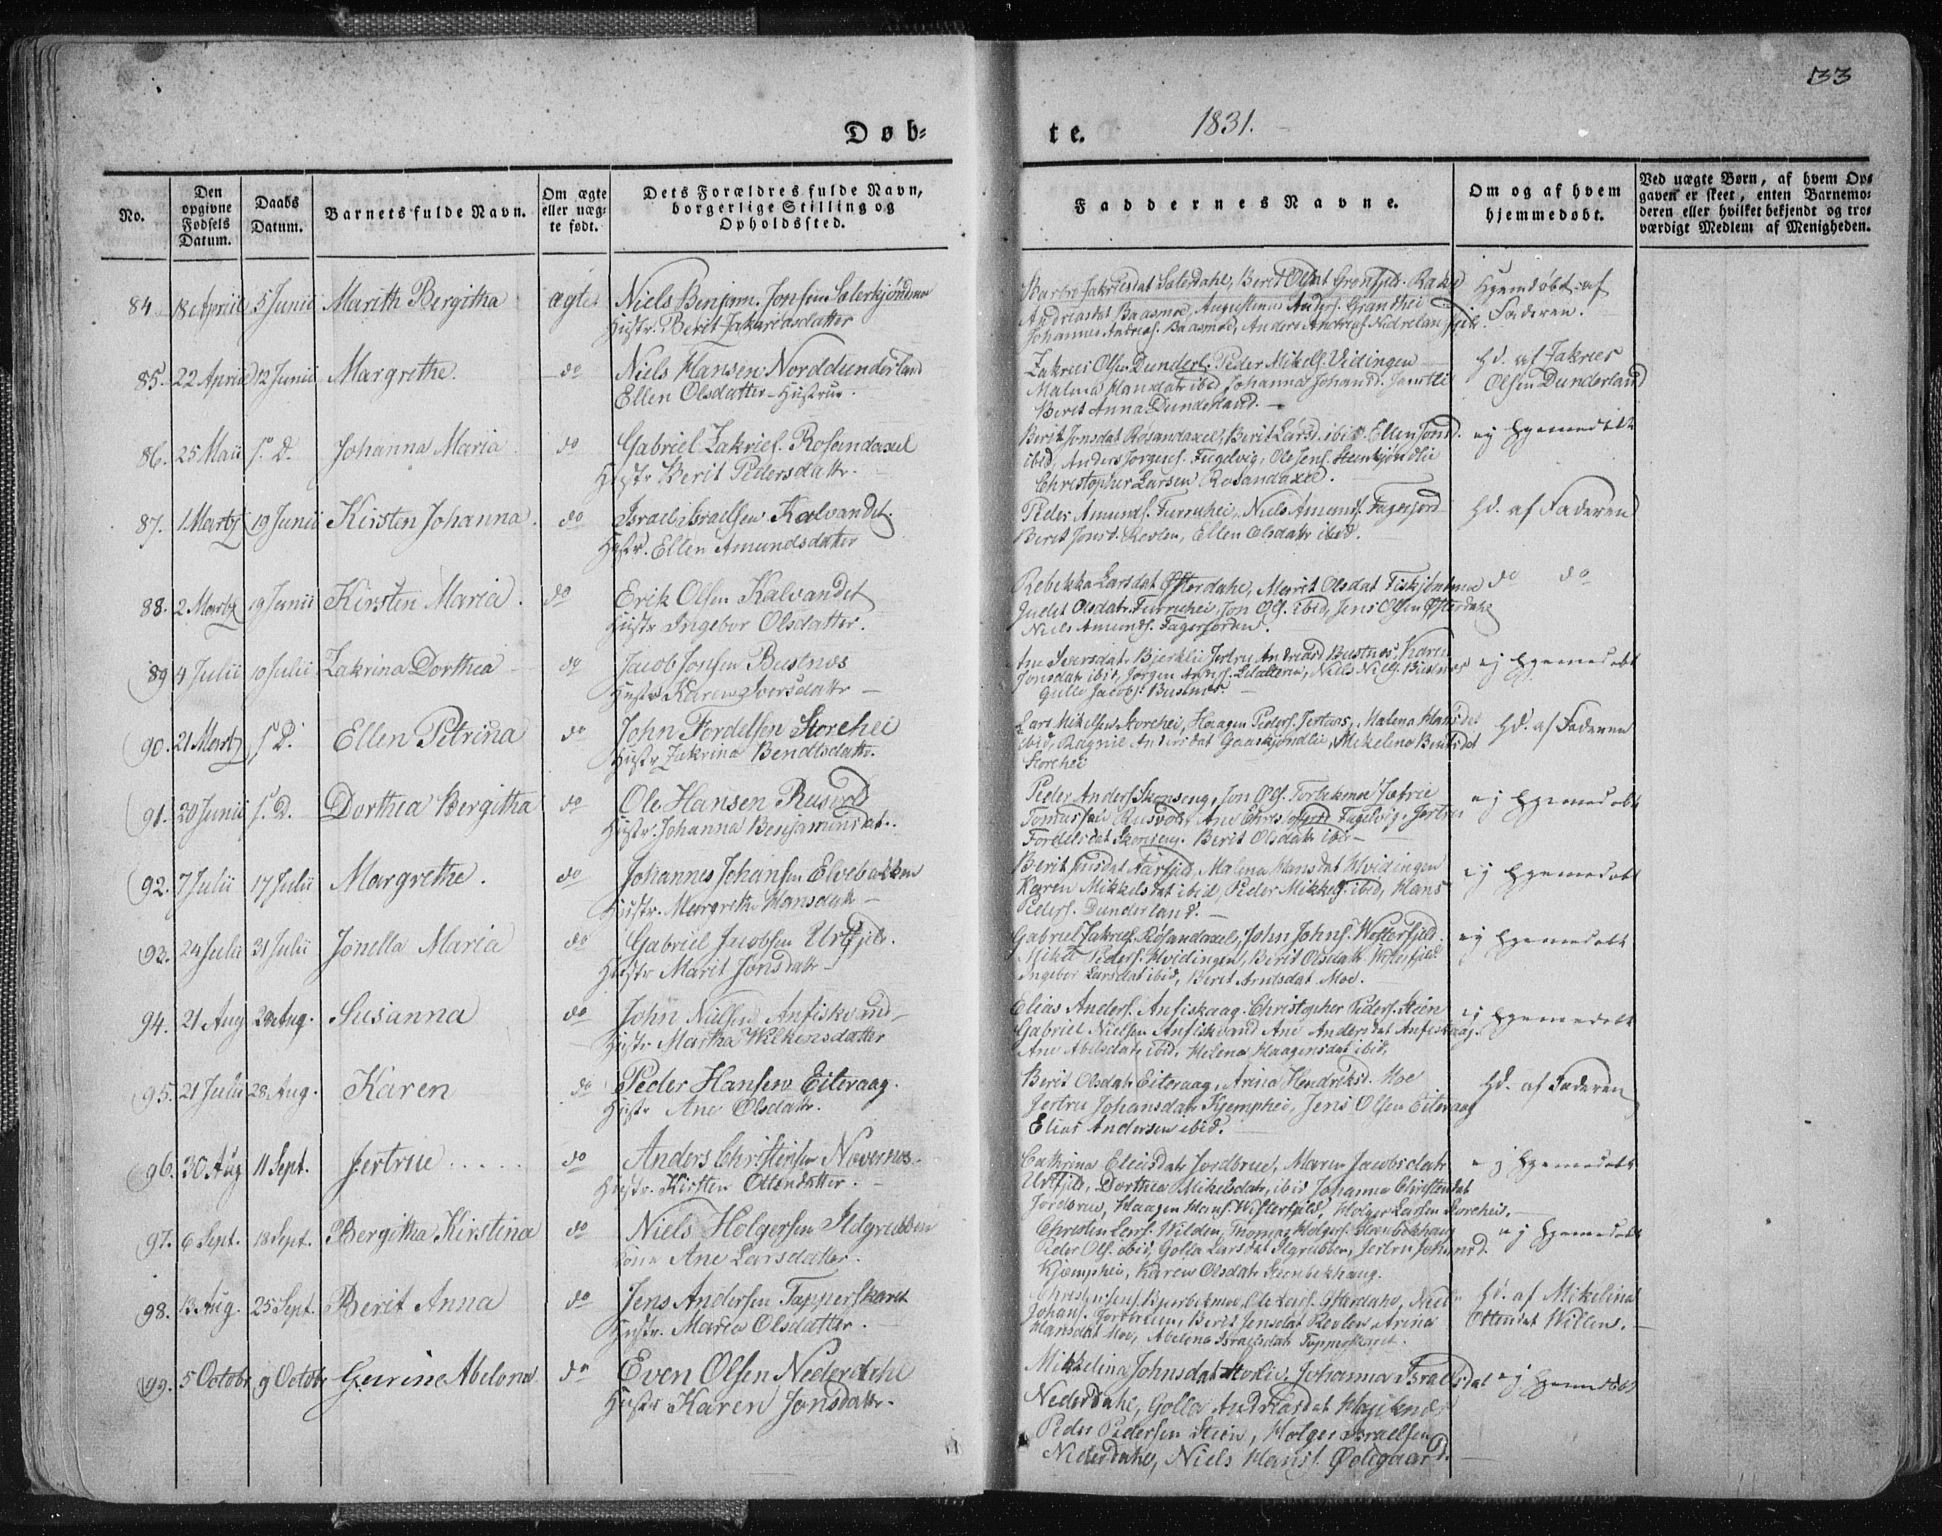 33
Døb-
te.
1831.
No.
Den opgivne Fødsels Datum.
Daabs Datum.
Barnets fulde Navn.
Om ægte eller uæg-te født.
Dets Forældres fulde Navn, borgerlige Stilling og Opholdssted.
Faddernes Navne.
Om og af hvem hjemmedøbt.
Ved uægte Børn, af hvem Op-gaven er skeet, enten Barnemo-deren eller hvilket bekjendt og tro-værdigt Medlem af Menigheden.
84. 18 April 5 Junii Marith Bergitha ægte Niels Benjam. Jonsen
Hustr. Berit Zakariasdatter
Hjemdøbt af
Faderen.
85. 22 April 12 Junii Margrethe. do Niels Hansen Norddunderland
Ellen Olsdatter Hustrue.
Zakries Olsen Dunderl. Peder Mikels. Vidingen
Malena Hansdatr ibid Johanna Johansd.
Berit Anna Dunderland.
Hd. af Zakries
Olsen Dunderland
86. 25 Maii s. D. Johanna Maria do Gabriel Zakries. Rosandaxel
Hustr Berit Pedersdattr.
Berit Jonsdat Rosandaxel, Berit Larsd. ibid. Ellen Jonsd.
ibid, Anders Jørgens. Fugelvig, Ole Jens.
Christopher Larsen Rosandaxel.
ej hjemedøbt
87. 1 Martj 19 Junii Kirsten Johanna. do Israel Israelsen Kalvandet.
Hustr. Ellen Amundsdatter
Peder Amunds. Furruhei, Niels Amunds. Fagerjord
Berit Jonsd. Revlen, Ellen Olsdatr ibid.
Hd. af Faderen
88. 2 Martj 19 Junii Kirsten Maria. do Erik Olsen Kalvandet
Hustr Ingebor Olsdatter.
Rebekka Larsdat Østerdahl, Marit Olsdat
Judit Olsdatr. Furruhei, Jon Ols. ibid, Jens Olsen Østerdahl
Niels Amunds. Fagerjorden.
do do
89 4 Julii 10 Julii Zakrina Dorthea do Jacob Jonsen Bustnes
Hustr Karen Iversdattr
Ane Iversdat. Bjerklie Jertru Andreasd Bustnes, Karen
Jonsdatr ibid, Jørgen
Gulle Jacobs. Bustnes.
ej hjemedøbt
90. 21 Martj s. D. Ellen Petrina do John Fordelsen Storehei
Hustr Zakrina Bendtsdattr.
Lars Mikelsen Storehei, Haagen Peders. Malena Hansdat
ibid, Ragnil Andersdat Gaaskjøndlie, Mikelina Bentsdat
Storehei
Hd. af Faderen
91. 20 Junii s. D. Dorthea Bergitha do Ole Hansen Rusvold
Hustr. Johanna Benjaminsdat.
Peder Anders Skonseng, Jon Ols.
Fordelsdat Skonseng. Berit Olsdatr ibid
ej hjemedøbt
92. 7 Julii 17 Julii Margrethe. do Johannes Johansen Elvebakken
Hustr. Margrethe Hansdatr
Malena Hansdat Hvidingen
Karen Mikkelsdat ibid, Peder Mikkels. ibid, Hans
Peders. Dunderland.
ej hjemedøbt
93. 24 Julii 31 Julii Jonella Maria do Gabriel Jacobsen Urtfjeld.
Hustr Marit Jonsdattr
Gabriel Zakries. Rosandaxel, John Johns. Westerfjeld.
Mikel Peders. Hvidingen, Berit Olsdatr
Ingebor Larsdat ibid, Berit Arntsdat Moe.
ej hjemedøbt
94. 21 Aug 28 Aug. Susanna do John Nielsen Anfiskvand
Hustr Martha Wilkensdatter
Elias Anders. Anfiskaag. Christopher Peders. Steen
Gabriel Nielsen Anfiskvand Ane Andersdat Anfiskaag.
Ane Abelsdatr ibid, Helena Haagensdat ibid.
ej hjemedøbt
95. 21 Julii 28 Aug. Karen do Peder Hansen Eiteraag.
Hustr Ane Olsdattr.
Berit Olsdatr Eiteraag, Arina Hendriksd. Moe
Jertru Johansdatr Kjemphei, Jens Olsen Eiteraag
Elias Andersen ibid.
Hd. af Faderen
96. 30 Aug 11 Sept. Jertrue do Anders Christensen Nævernes.
Hustr. Kirsten Ottersdatter.
Cathrina Eliasdatr Jordbrue, Maren Jacobsdatr
Urtfjeld, Dorthea Mikelsdatr, ibid Johanna Christendat
Jordbrue, Haagen Hans. Westerfjeld, Holger Larsen Storehei.
ej hjemedøbt
97. 6 Sept. 18 Sept. Bergitha Kirstina do Niels Holgersen Ildgrubben
Kone Ane Larsdatter.
Christen Lars. Wilden, Thomas Holgers. Steenbekhaug
Peder Ols. ibid, Golla Larsdat Ilgrubben, Jertru Johansd.
Kjæmphei, Karen Olsdatr Steenbekhaug.
ej hjemedøbt
98. 13 Aug. 25 Sept. Berit Anna do Jens Andersen Tapperskaret
Hustr. Maria Olsdatter.
Ole Lars. Østerdahl, Niels
Johans. Berit Jensdatr Revlen Arina
Hansdat Moe, Abelona Israelsdatr Tapperskaret.
Hd. af Mikelina
Ottersdat Willen.
99. 5 Octobr 9 Octobr Gurine Abelona do Even Olsen Nederdahl
Hustr Karen Jonsdattr.
Mikkelina Johnsdat Johanna Israelsdat
Nederdahl, Golla Andreasdat
Peder Pedersen Steen, Holger Israelsen
Nederdahl, Niels Hans. Ødegaard.
ej hjemedøbt